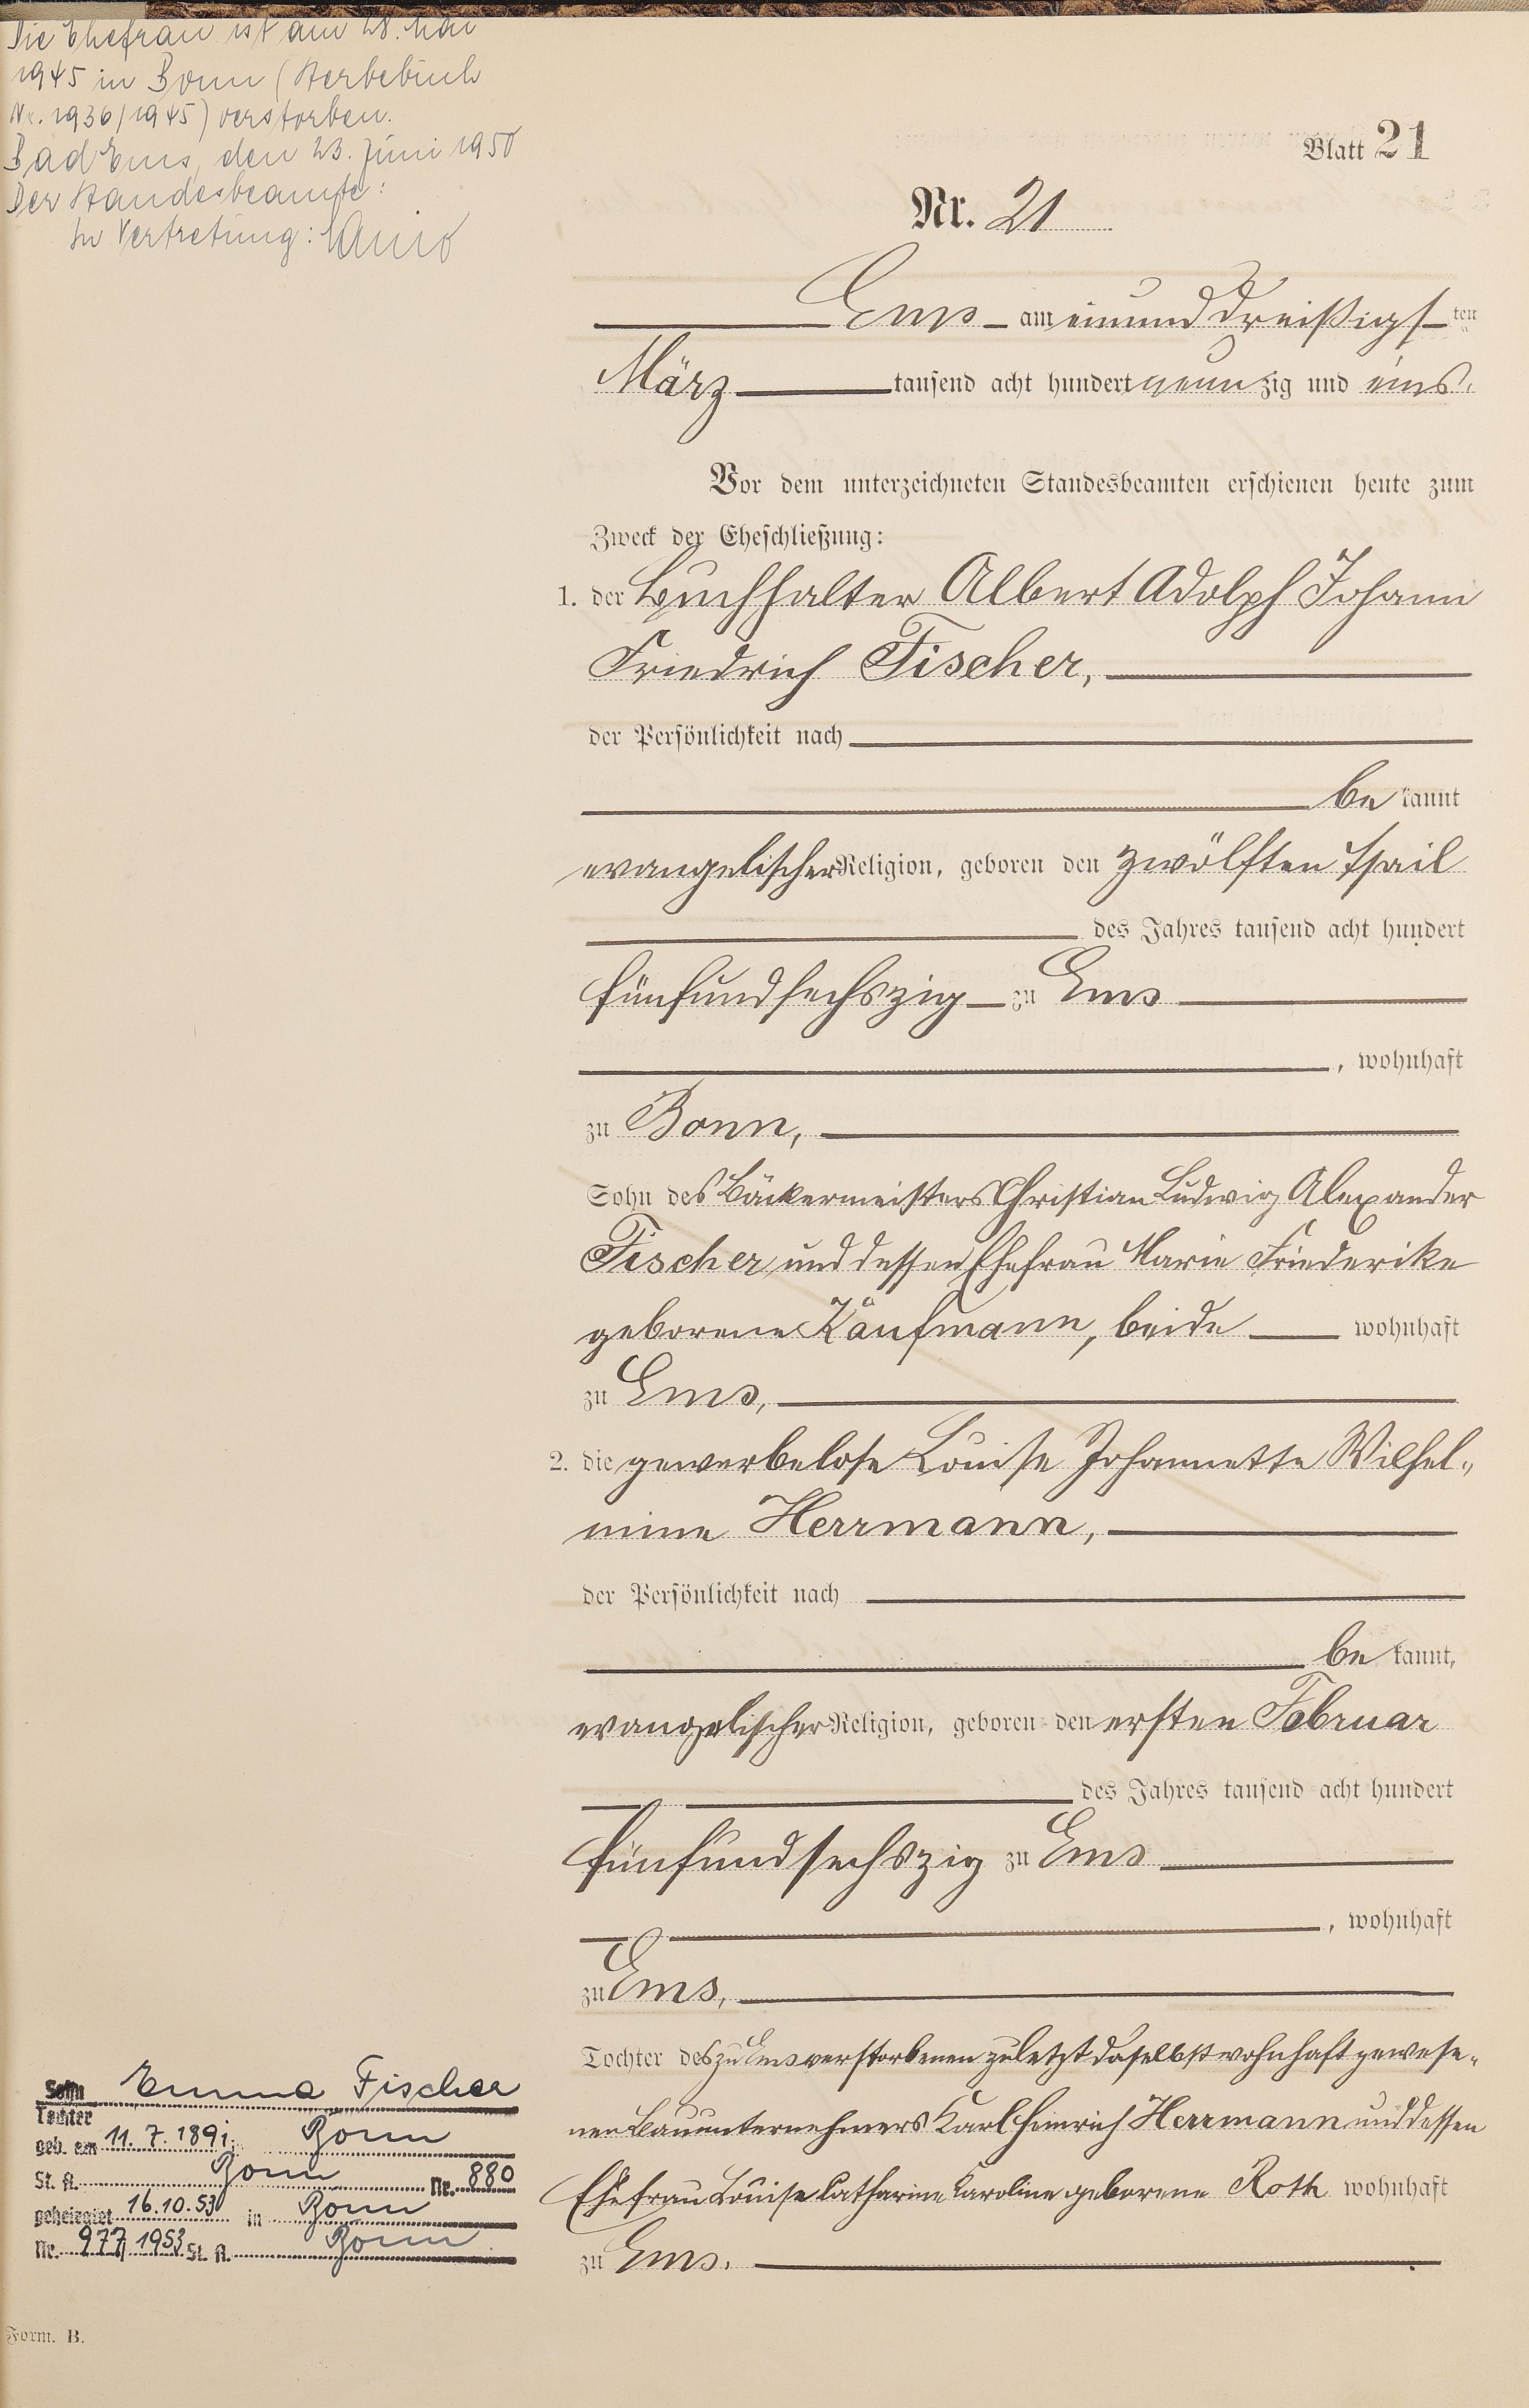 Die Ehefrau ist am 28. Mai
1945 in Bonn (Sterbebuch
Nr. 1936/1945) verstorben.
Bad Ems, den 23. Juni 1950
Der Standesbeamte:
In Vertretung:
Blatt 21
Nr. 21
Ems am einund dreißigsten
März tausend acht hundert neunzig und eins.
Vor dem unterzeichneten Standesbeamten erschienen heute zum
Zweck der Eheschließung:
1. der Buchhalter Albert Adolph Johann
Friedrich Fischer,
der Persönlichkeit nach
bekannt
evangelischer Religion, geboren den zwölften April
des Jahres tausend acht hundert
fünfundsechszig zu Ems
, wohnhaft
zu Bonn,
Sohn des Bäckermeisters Christian Ludwig Alexander
Fischer und dessen Ehefrau Marie Friederike
geborene Kaufmann, beide wohnhaft
zu Ems,
2. die gewerbelose Louise Johannette Wilhel-
mine Herrmann,
der Persönlichkeit nach
bekannt,
evangelischer Religion, geboren den ersten Februar
des Jahres tausend acht hundert
fünfundsechszig zu Ems
, wohnhaft
zu Ems,
Tochter des zu Ems verstorbenen zuletzt daselbst wohnhaft gewese-
nen Bauunternehmers Karl Heinrich Herrmann und dessen
Ehefrau Louise Catharine Caroline geborene Roth wohnhaft
zu Ems.
Sohn Emma Fischer
Tochter
geb. am 11. 7. 1891 Bonn
St. A. Bonn Nr. 880
geheiratet 16.10.53 in Bonn
Nr. 977/1953 St. A. Bonn
Form. B.